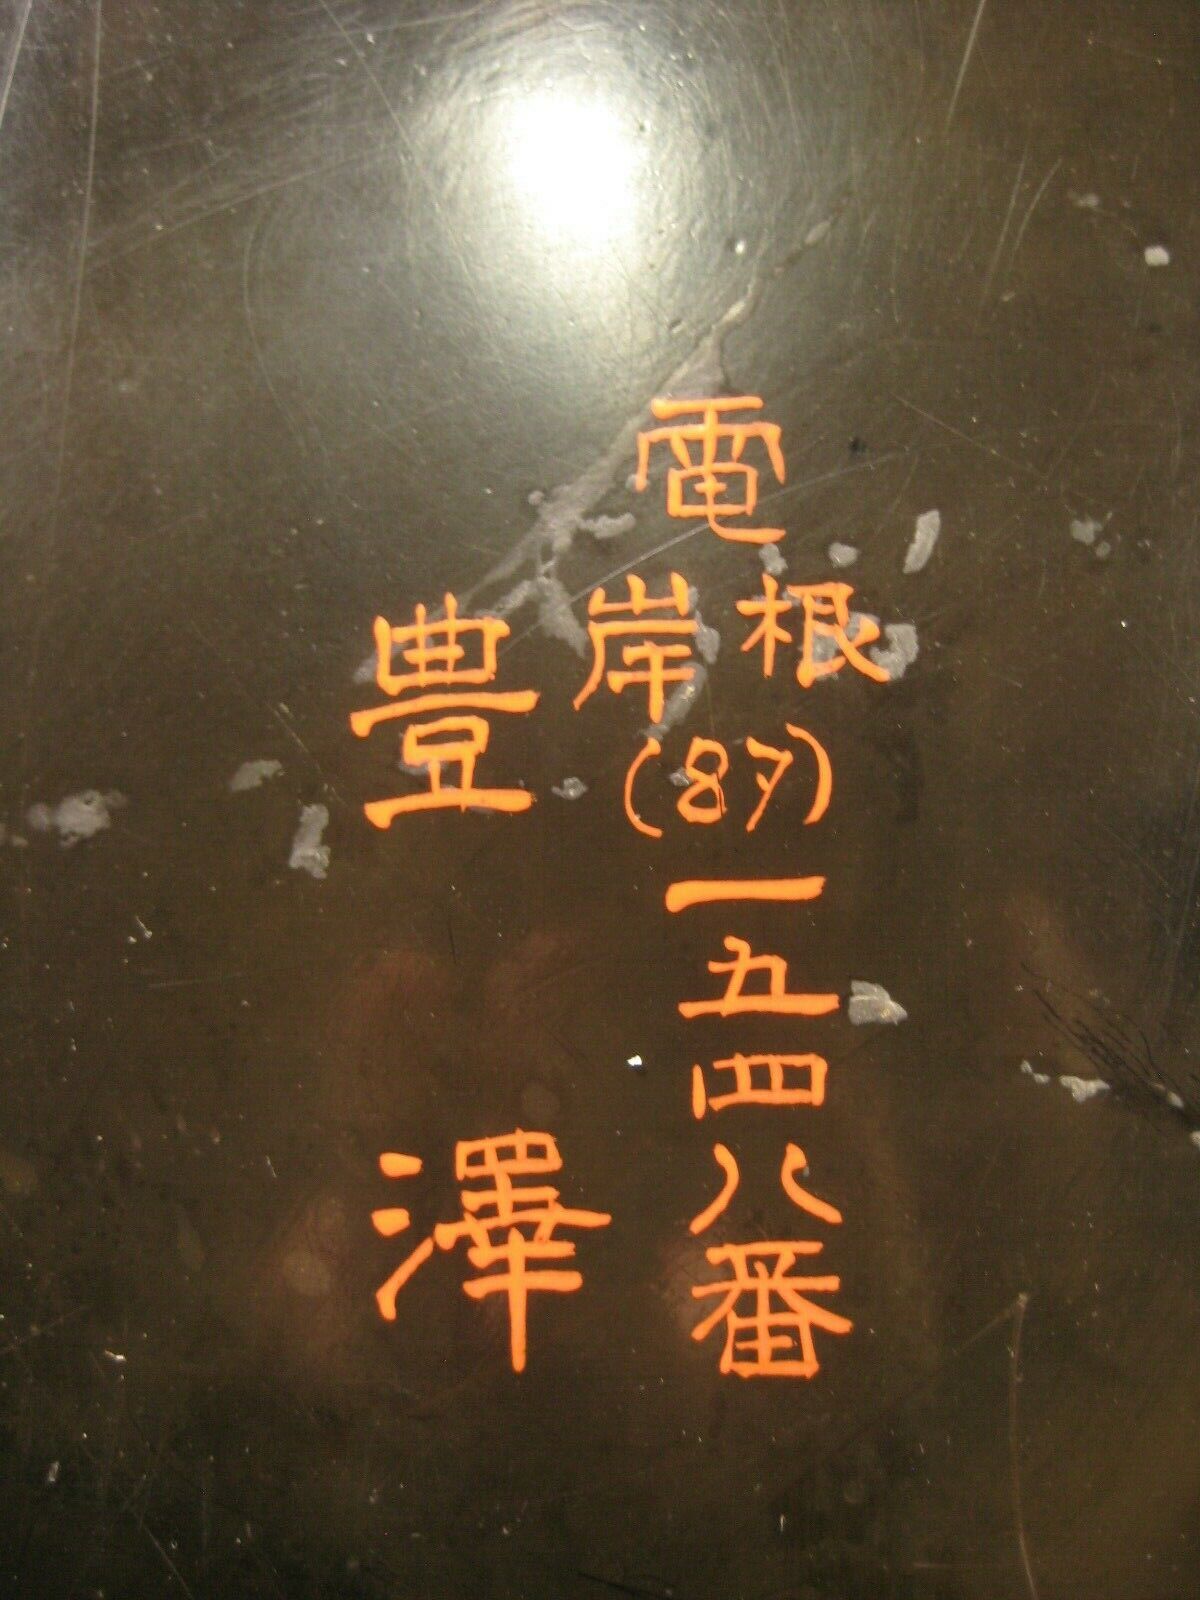 電根岸(87)一五四八番
豊澤